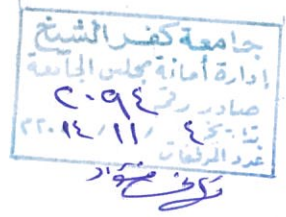 جامعة كفر الشيخ
إدارة أمانة مجلس الجامعة
صادر رقم ٢٠٩٤
تاريخ ٤ / ١١ / ٢٠١٤
عدد المرفقات